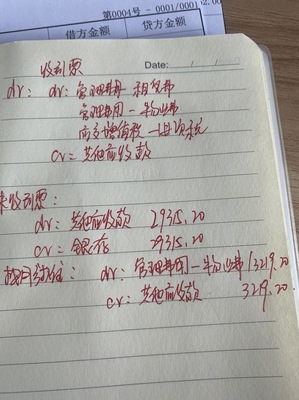 第0004号 - 0001/0001
借方金额 贷方金额
收到票 Date:
dr: dr: 管理费用 租赁费
管理费用一物业费
应交增值税一进项税
cr= 其他应收款
未收到票:
dr: 其他应收款 29315.20
cr= 银存 29315.20
按月结 : dr: 管理费用一物业费 1329.20
cr: 其他应收款 329.20